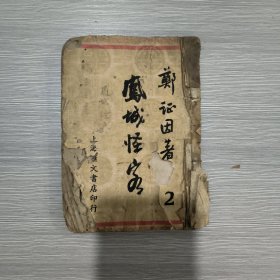 鄭证因著
鳳城怪客
2
上海廣文書店印行